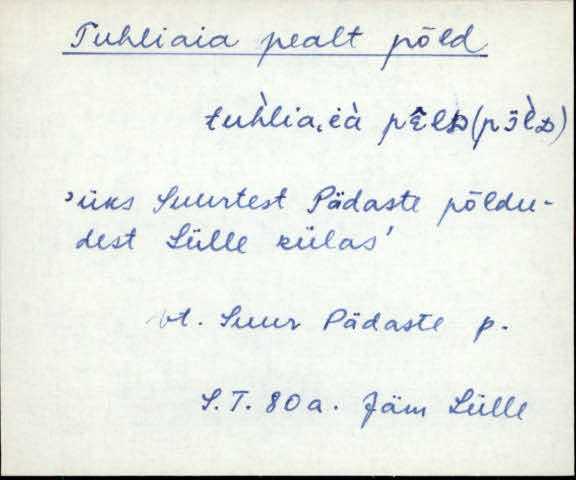 Tuhliaia pealt põld
tuh̀lia͕ià pê̮lD (pɔ̄̈l̀D)
'üks Suurtest Pädaste põldu-
dest Lülle külas'
vt. Suur Pädaste p.
S.T. 80 a. Jäm Lülle